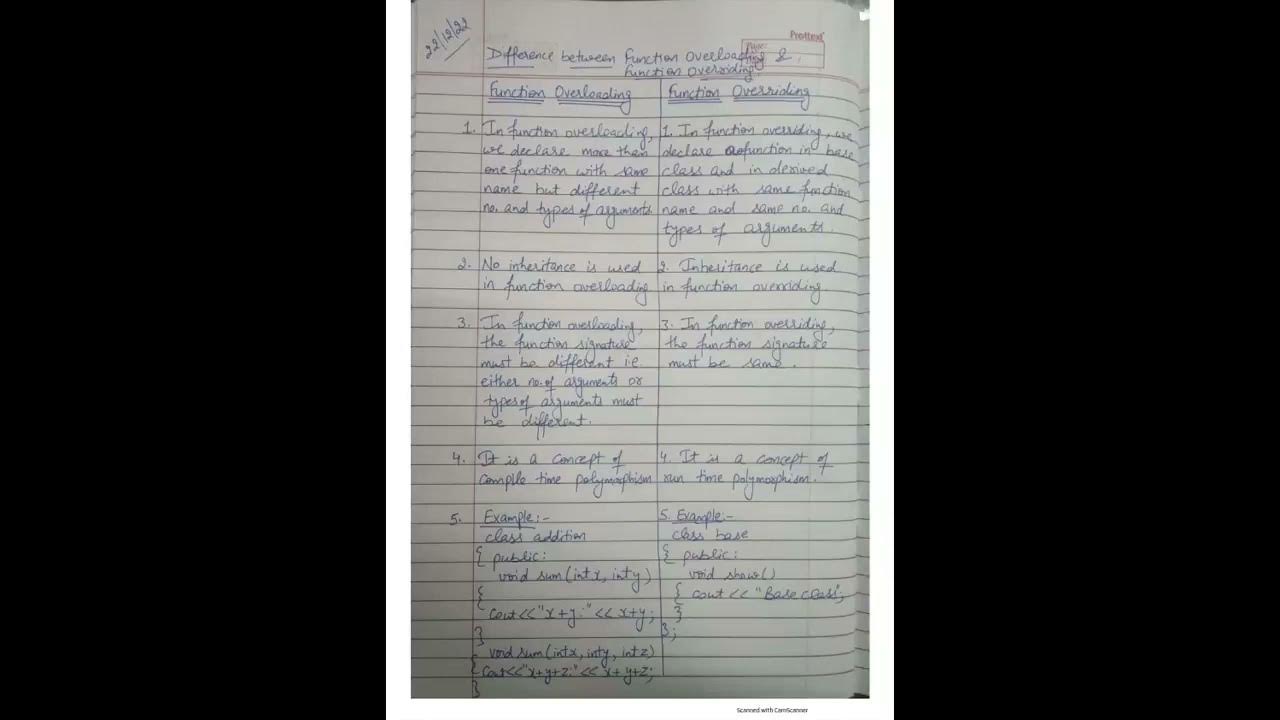 22/12/22
Prottext
Page:
Difference between Function Overloading &
Function Overriding.
Function Overloading
1. In function overloading,
we declare more than
one function with same
name but different
no. and types of arguments.
2. No inheritance is used
in function overloading
3. In function overloading,
the function signature
must be different i.e.
either no. of arguments or
types of arguments must
be different.
4. It is a concept of
compile time polymorphism
5. Example:-
class addition
{ public:
void sum(int x, int y)
{
cout<<"x+y:"<<x+y;
}
void sum(int x, int y, int z)
{ cout<<"x+y+z:"<<x+y+z;
}
Function Overriding
1. In function overriding, we
declare a function in base
class and in derived
class with same function
name and same no. and
types of arguments.
2. Inheritance is used
in function overriding.
3. In function overriding,
the function signature
must be same.
4. It is a concept of
run time polymorphism.
5. Example:-
class base
{ public:
void show()
{ cout << "Base class";
}
};
Scanned with CamScanner